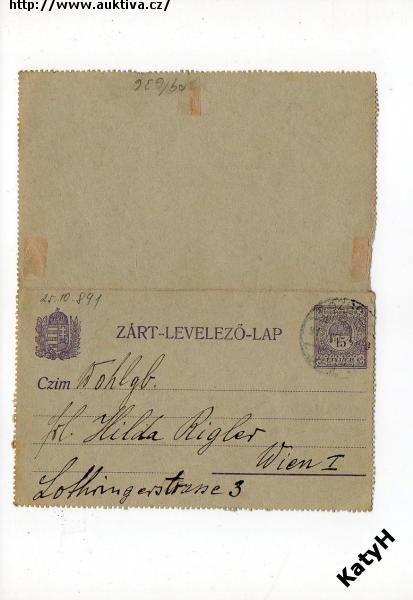 http://www.auktiva.cz/
25.10.891
ZÁRT-LEVELEZŐ-LAP
15
Czim Wohlgb.
Frl. Hilda Rigler
Wien I
Lothringerstrasse 3
KatyH